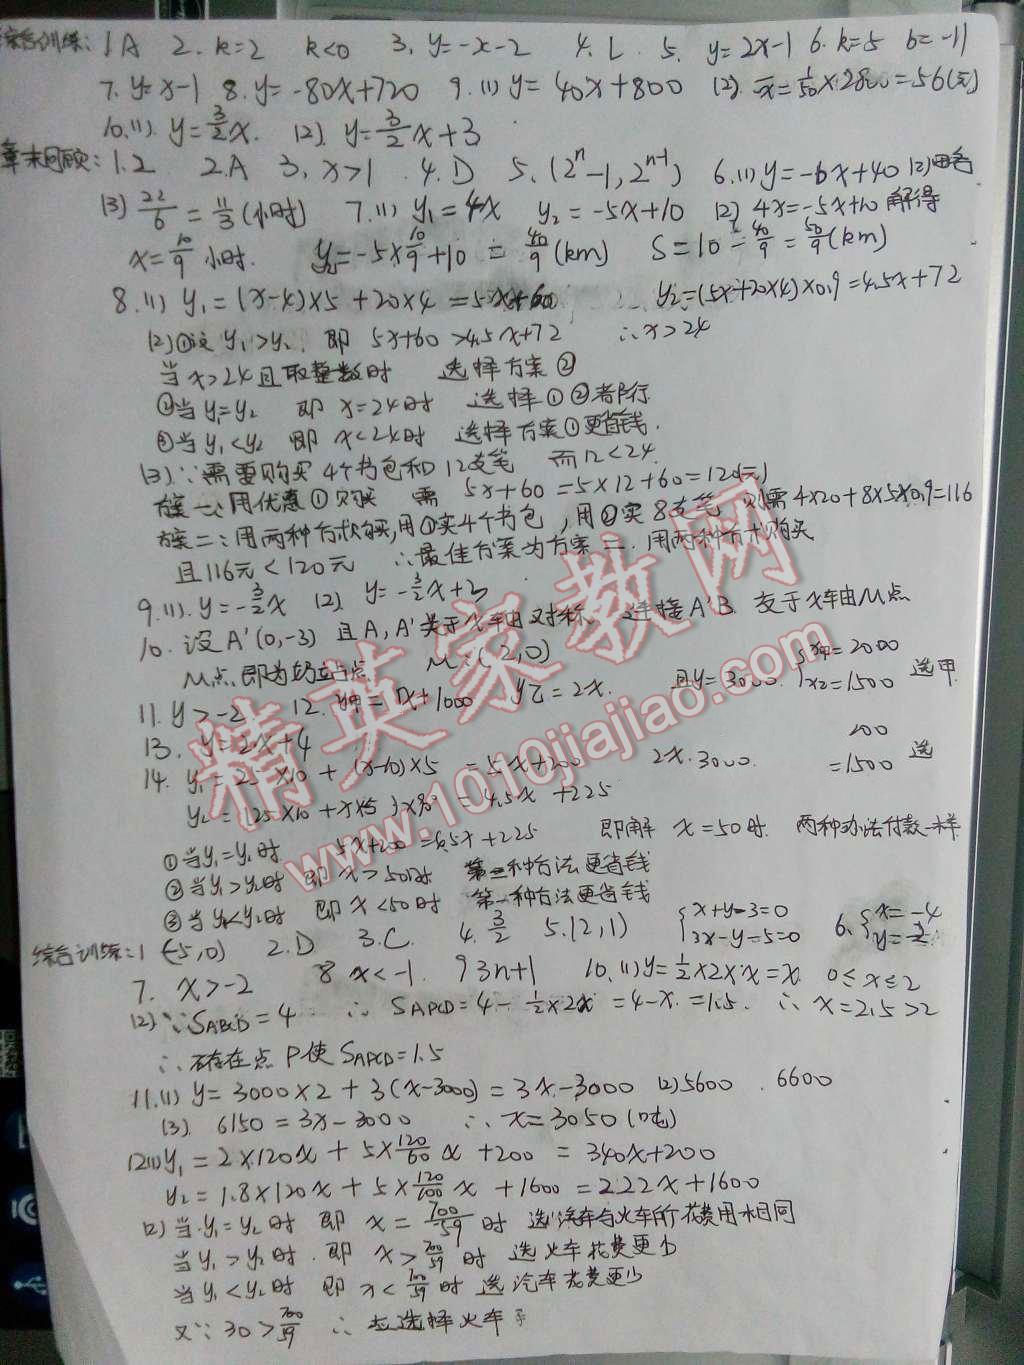 综合训练: 1.A 2. k=2 k<0 3. y=-x-2 4. L. 5. y=2x-1 6. k=5 b=-11
7. y=x-1 8. y=-80x+720 9. (1) y=40x+800 (2). x=1/50×2800=56(元)
10.(1). y=3/2x. (2) y=3/2x+3
章末回顾: 1.2 2.A 3. x>1 4.D 5. (2ⁿ-1, 2ⁿ⁻¹) 6.(1) y=-6x+40 (2)略
(3) 22/6=11/3(小时) 7.(1) y₁=4x y₂=-5x+10 (2) 4x=-5x+10 解得
x=10/9小时. y₂=-5×10/9+10=40/9(km) S=10-40/9=50/9(km)
8.(1) y₁=(x-4)×5+20×4=5x+60 y₂=(5x+20×4)×0.9=4.5x+72
(2)①设y₁>y₂. 即 5x+60>4.5x+72 ∴x>24
当x>24且取整数时 选择方案②
②当y₁=y₂ 即 x=24时 选择①②都行
③当y₁<y₂ 即 x<24时 选择方案①更省钱.
(3)∵需要购买4个书包和12支笔 而12<24.
方案一:用优惠①购买 需 5x+60=5×12+60=120(元)
方案二:用两种方式购买,用①买4个书包,用②买8支笔 则需4×20+8×5×0.9=116
且116元<120元 ∴最佳方案为方案二.用两种方式购买
9.(1). y=-3/2x (2). y=-3/2x+3
10. 设A'(0,-3) 且A,A'关于x轴对称. 连接A'B 交于x轴由M点
M点即为 M:(2,0)
11. y>-2 12. y甲=x+1000 y乙=2x. 且y=3000. {x甲=2000 x乙=1500 选甲
13. y=2x+4
14. y₁=25×10+(x-10)×5=5x+200 2x.3000. 200 =1500 选
y₂=(25×10+x×5)×90%=4.5x+225
①当y₁=y₂时 5x+200=4.5x+225 即解 x=50时. 两种办法付款一样
②当y₁>y₂时 即 x>50时 第二种方法更省钱
③当y₁<y₂时 即 x<50时 第一种方法更省钱
综合训练:1 (-5,0) 2.D 3.C. 4. 3/2 5.(2,1) {x+y-3=0 3x-y-5=0 6. {x=-4 y=-2
7. x>-2 8 x<-1. 9 3n+1 10.(1) y=1/2×2×x=x. 0≤x≤2
(2)∵S ABCD=4 ∴ S APCD=4-1/2×2x=4-x.=1.5. ∴ x=2.5>2
∴不存在点P使S APCD=1.5
11.(1) y=3000×2+3(x-3000)=3x-3000 (2)5600 . 6600
(3). 6150=3x-3000 ∴x=3050(吨)
12(1) y₁=2×120x+5×120/60x+200=340x+200
y₂=1.8×120x+5×120/100x+1600=222x+1600
(2)当y₁=y₂时 即 x=700/59时 选汽车与火车所花费用相同
当y₁>y₂时.即 x>700/59时 选火车花费更少
当y₁<y₂时 即 x<700/59时 选汽车花费更少
又∵30>700/59 ∴应选择火车
精英家教网
www.1010jiajiao.com